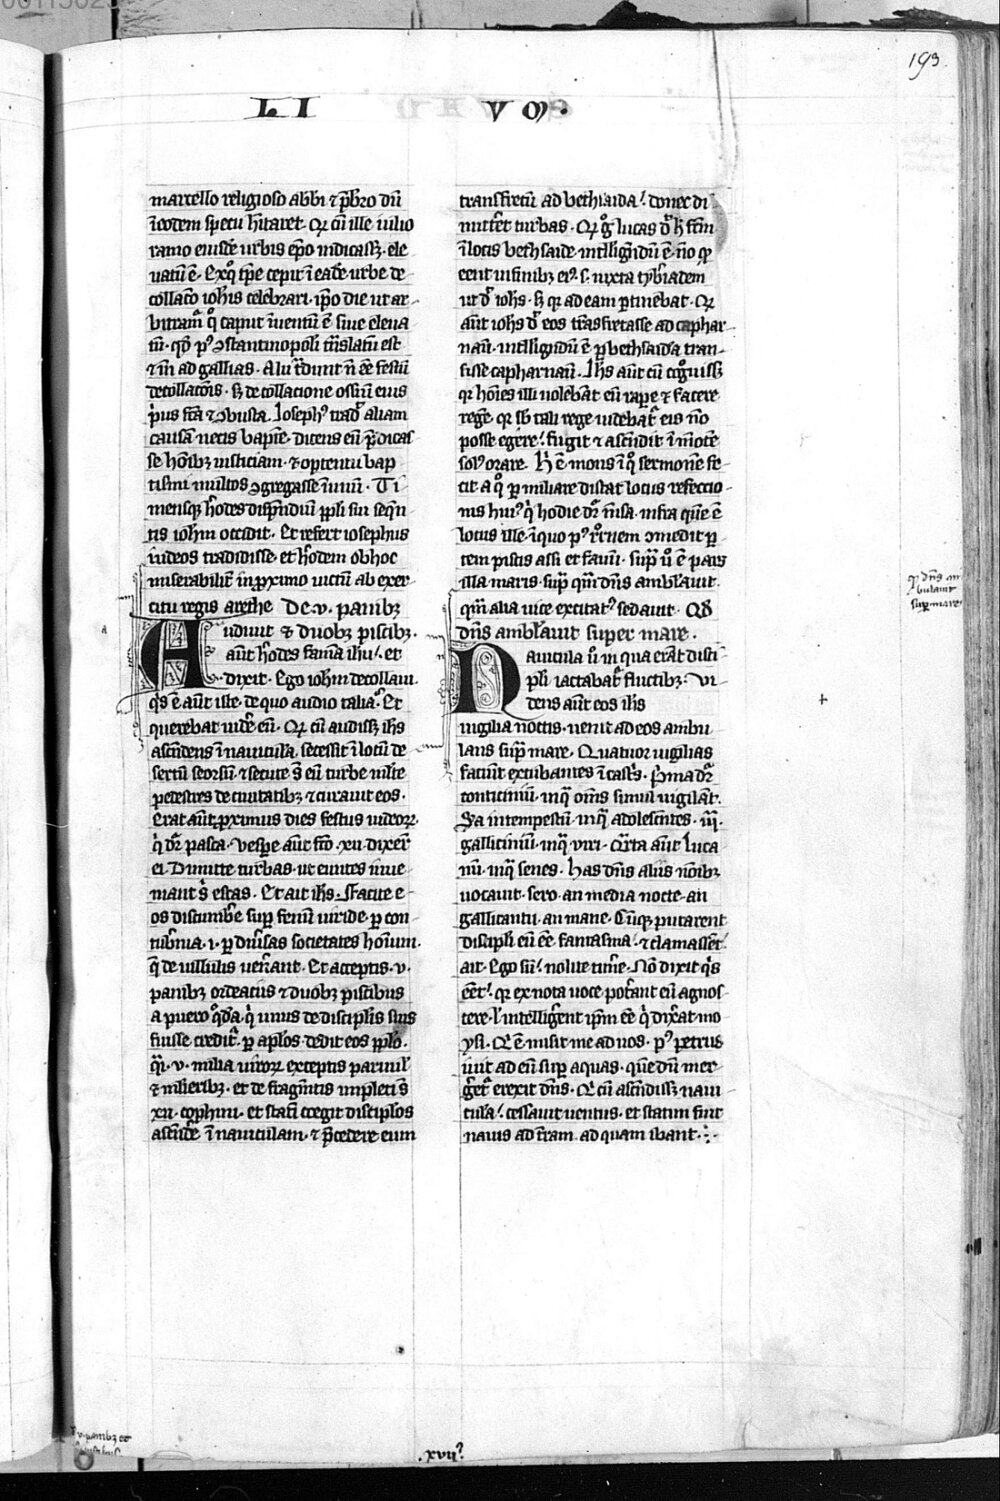 193
LI VM.
marcello religioso abbi ⁊ p̄bro dn̄i
ī eodem specu h̄itaret. Qꝛ cū ille iulio
ramo eiusdē urbis ep̄o indicasꝫ. ele
uatū ē. Exq̊ tp̄e cepit ī eadē urbe de
collac̄o ioh̄is celebrari. ip̄o die ut ar
bitramᷣ q̊ caput īuentū ē siue eleua
tū. qd̄ pꝰ ꝯstantinopoli trīslatū est
⁊ īn̄ ad gallias. Alii t̄dunt n̄ ēē festū
decollac̄ois. sꝫ de collacione ossiū eius
p̄us sc̄a ⁊ ꝯbusta. Iosephꝰ trad̄ aliam
causā necis baptē. dicens eū p̄dicas
se hōibꝫ iusticiam. ⁊ optentu bap
tismi multos ꝯgregasse ī unū. Ti
mensqꝫ h̄odes dispendiū ppl̄i sui seqn̄
tis ioh̄m occidit. Et refert iosephus
iudeos tradidisse. et h̄odem ob hoc
miserabilit̄ in ꝓximo uictū ab exer
citu regis arethe De .v. panibꝫ
Audiuit ⁊ duobꝫ piscibꝫ.
aūt h̄odes famā ih̄u. et
dixit. Ego ioh̄m decollaui.
q̄s ē aūt iste. de quo audio talia. Et
querebat uidē eū. Qꝛ cū audissꝫ ih̄s
ascēdens ī nauicula. secessit ī locū de
sertū seorsū. ⁊ secute s̄ eū turbe ml̄te
pedestres de ciuitatibꝫ ⁊ curauit eos.
Erat aūt ꝓximus dies festus iudeoꝝ.
q̇ dr̄ pasca. Vesp̄e aūt fc̄o .xii. dixer̄
ei. Dimitte turbas. ut euntes inue
niant s̄ escas. Et ait ih̄s. Facite e
os discumbē sup̄ fenū uiride. p̄ con
tub̄nia .i. ꝑ diūsas societates hōium.
q̄ de uillulis uen̄ant. Et acceptis .v.
panibꝫ ordeaciis ⁊ duobꝫ piscibus
a puero q̊dā. q̇ unus de discipl̄is suis
fuisse creditᷣ. ꝑ apl̄os. dedit eos ppl̄o.
q̄i .v. milia uiroꝝ exceptis paruul̄
⁊ ml̄ieribꝫ. et de fragm̄tis impleti s̄
xii. cophini. et statī coegit discipl̄os
ascēdē ī nauiculam. ⁊ p̄cedere eum
transfretū ad bethsaida. donec di
mitt̄et turbas. Qꝛ g̊ lucas d̄ h̄ fc̄m
ī locis bethsaide. intelligēdū ē. n̄o qꝛ
eent ī finibꝫ eiꝰ. s. iuxta tyb̄iadem
ut d̄ ioh̄s. sꝫ qꝛ ad eam ꝑtinebat. Qꝛ
aūt ioh̄s d̄ eos trāsfretasse ad caphar
naū. intelligēdū ē ꝑ bethsaidā tran
sisse capharnaū. Ih̄s aūt cū cog̊uissꝫ
qꝛ hōies illi uolebāt eū rape ⁊ facere
regē. qꝛ sb̄ tali rege uidebatᷣ eis n̄o
posse egere. fugit ⁊ ascēdit ī mōtē
solꝰ orare. H̄ ē mons ī q̊ sermonē fe
cit. a q̊ ꝑ miliare distat locus refectio
nis huiꝰ q̇ hodie dr̄ mēsa. infra quē ē
locus ille. ī quo pꝰ r̄r̄nem ꝯmedit p̄
tem piscis assi et fauū. sup̄ ů ē pars
illa maris. sup̄ qm̄ dn̄s amblauit.
qm̄ alia uice excitatꝰ sedauit. Qd̄
dn̄s amblauit super mare.
Nauicula ů in qua erāt disci
pl̄i iactabatᷣ fluctibꝫ. Vi
dens aūt eos ih̄s
uigilia noctis. uenit ad eos ambu
lans sup̄ mare. Quatuor uigilias
faciūt excubantes ī castris. p̄ma dr̄
conticiniū. in qͣ om̄s simul uigilāt.
S̄a intempestū. in qͣ adolescētes. iii.
galliciniū. in qͣ uiri. Qͣrta aūt luca
nū. in qͣ senes. Has dn̄s aliis noībꝫ
uocauit. sero. an media nocte. an
gallicantu. an mane. Cūqꝫ putarent
discipl̄i eū ēē fantasma. ⁊ clamassēt.
ait. Ego sū. nolite timē. Nō dixit q̇s
eēt. qꝛ ex nota uoce pot̄ant eū agnos
cere. ł intelligēnt ip̄m ēē q̇ dix̄at mo
ysi. Q̇ ē misit me ad uos. pꝰ petrus
iuit ad eū sup̄ aquas. quē dū mer
ḡetᷣ erexit dn̄s. Qꝛ cū ascēdissꝫ naui
culā. cessauit uentus. et statim fuit
nauis ad t̄ram. ad quam ibant.
qd̄ dn̄s am
bulauit
sup̄ mare
.xviiꝰ.